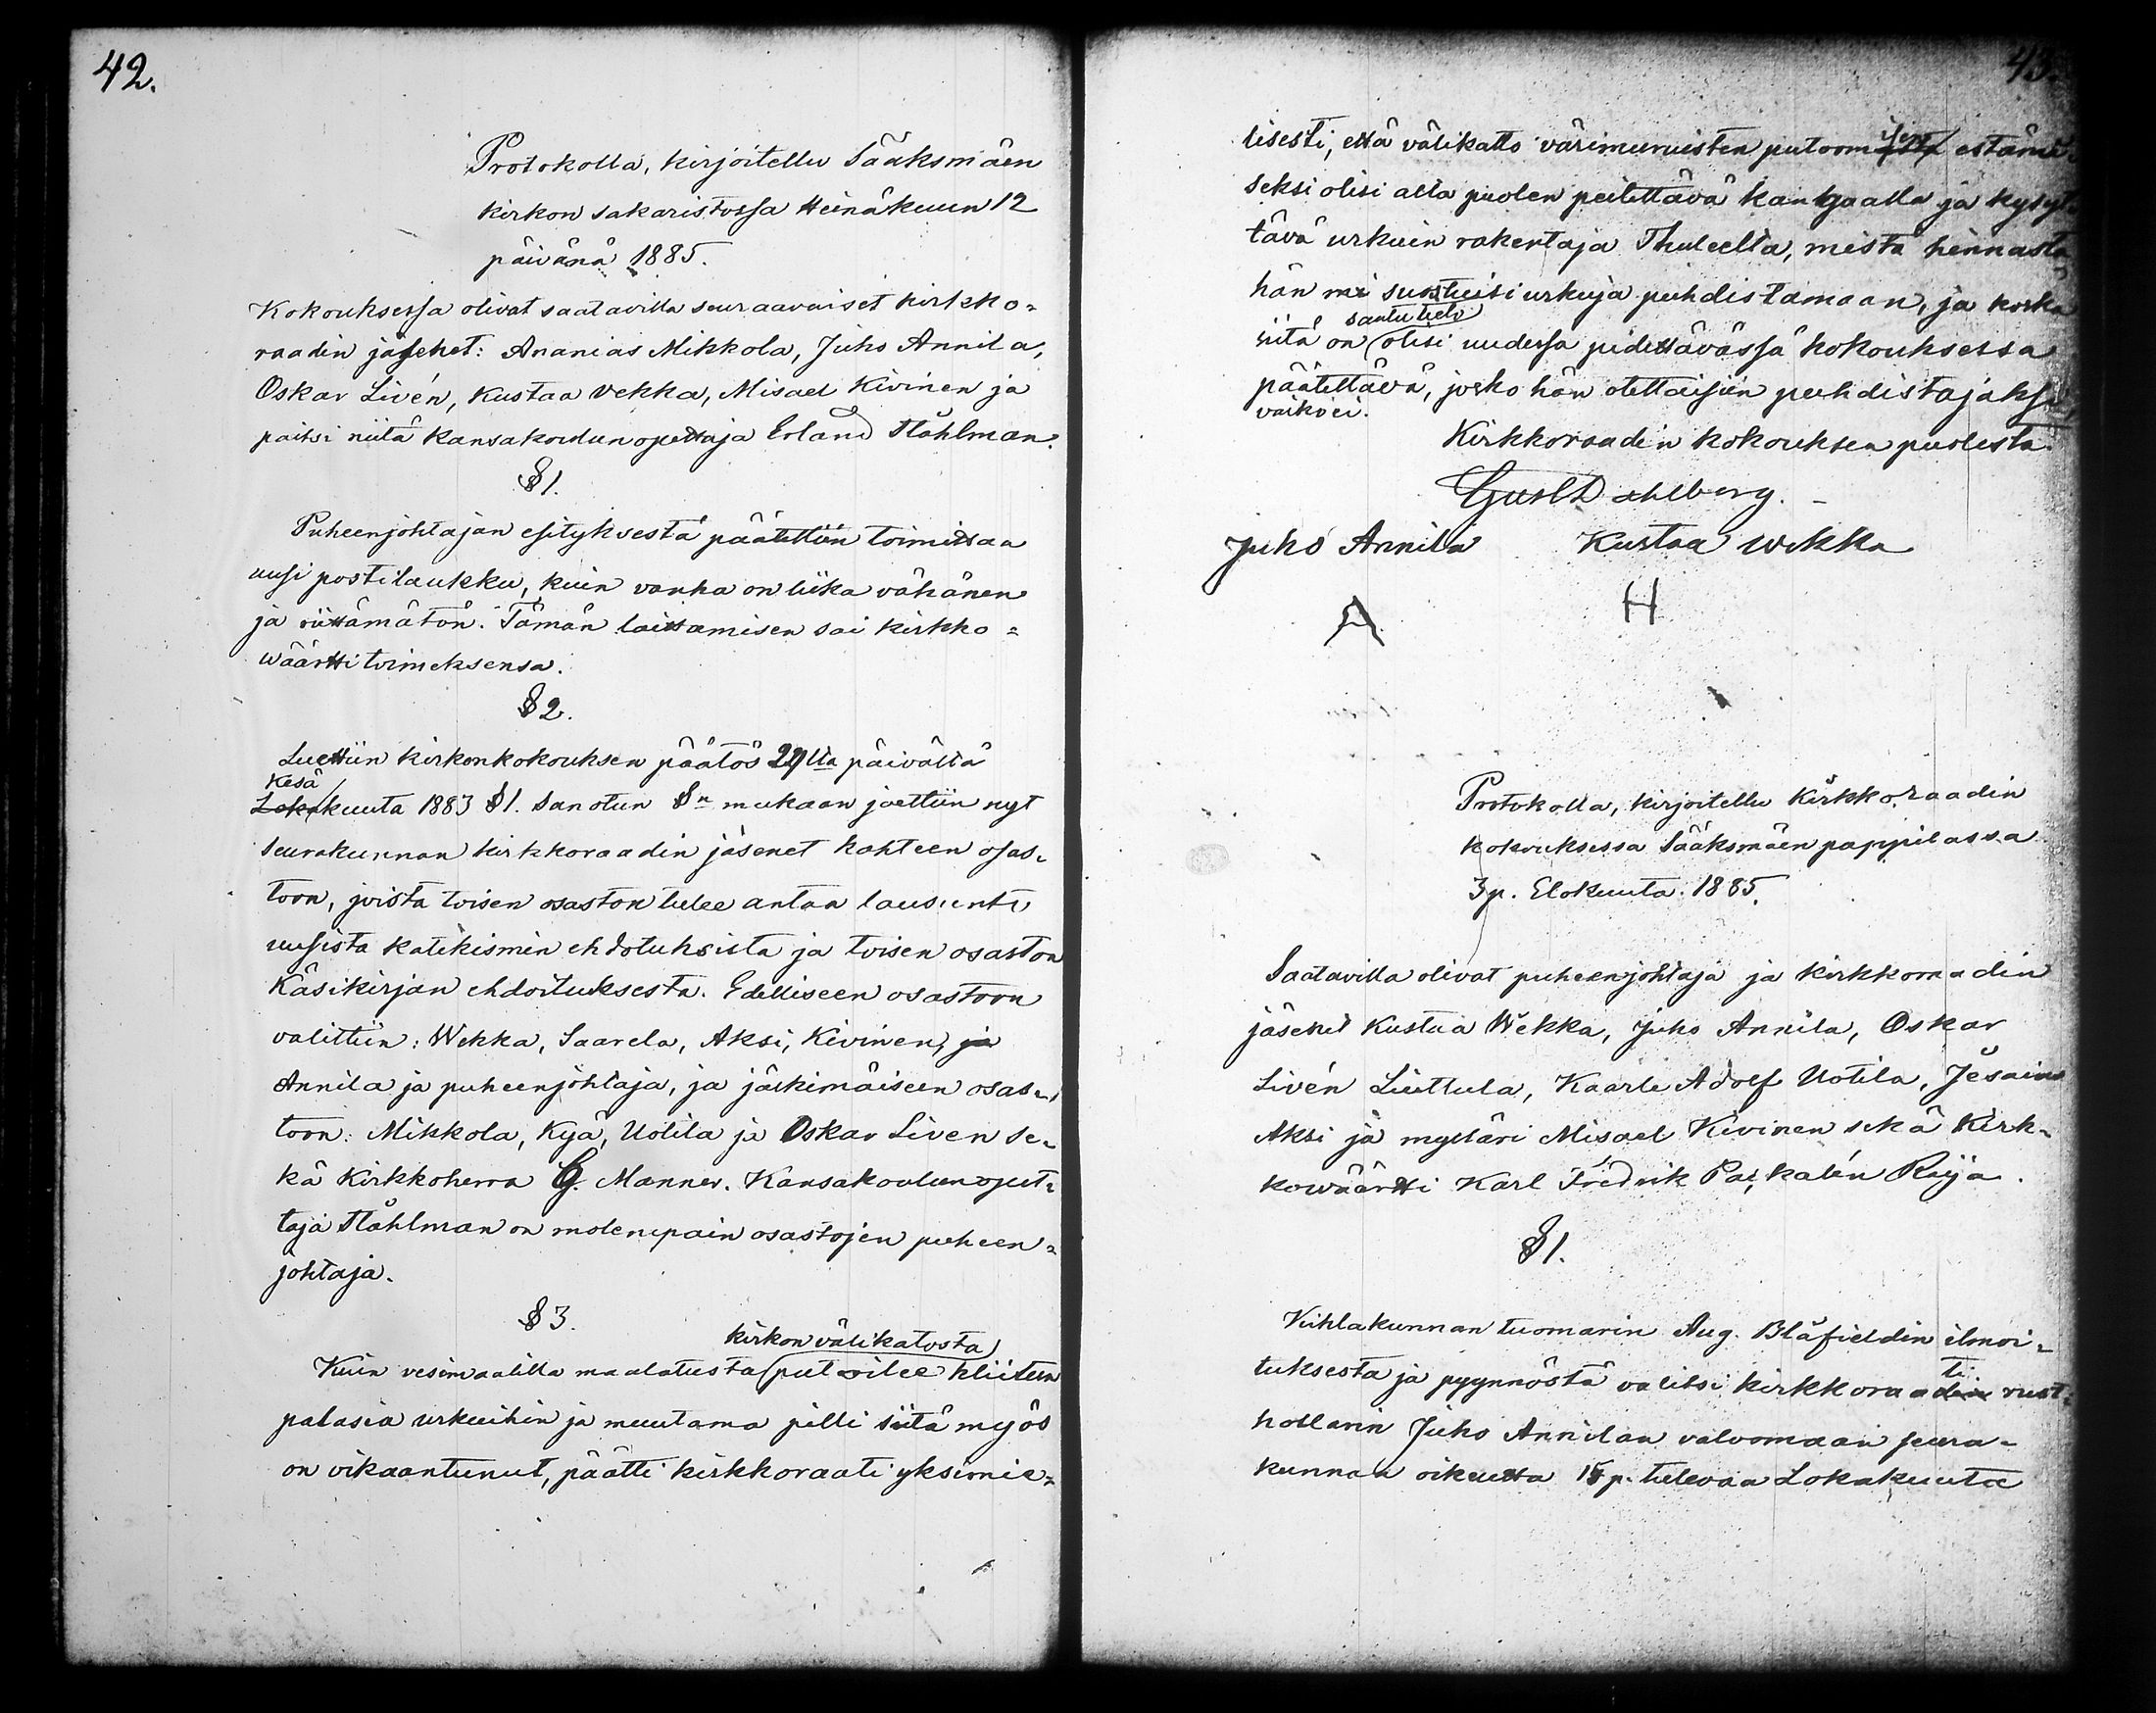 42.
Protokolla, kirjoitettu Sääksmäen
kirkon sakaristossa Heinäkuun 12
päivänä 1885.
Kokouksessa olivat saatavilla seuraavaiset kirkko=
raadin jäsenet: Ananias Mikkola, Juho Annila,
Oskar Livén, Kustaa Vekka, Misael Kivinen ja
paitsi niitä Kansakoulunopettaja Erland Ståhlman.
§ 1.
Puheenjohtajan esityksestä päätettiin toimittaa
uusi postilaukku, kuin vanha on liika vähänen
ja riittämätön. Tämän laittamisen sai kirkko=
wäärtti toimeksensa.
§ 2.
Luettiin kirkonkokouksen päätös 29 lta päivältä
Kesä
Lokakuuta 1883 § 1. Sanotun §n mukaan jaettiin nyt
Seurakunnan kirkkoraadin jäsenet kahteen osas=
toon, joista toisen osaston tulee antaa lausunto
uusista katekismin ehdotuksista ja toisen osaston
Käsikirjan ehdoituksesta. Edelliseen osastoon
valittiin: Wekka, Saarela, Aksi, Kivinen, ja
Annila ja puheenjohtaja, ja jälkimäiseen osas=
toon: Mikkola, Kyä, Uotila ja Oskar Liven se=
kä Kirkkoherra G. Manner. Kansakoulunopet=
taja Ståhlman on molempain osastojen puheen=
johtaja.
§ 3.
kirkon välikatosta
Kuin vesimaalilla maalatusta putoilee kliiteen
palasia urkuihin ja muutama pilli siitä myös
on vikaantunut, päätti kirkkoraati yksimie=
43.
lisesti, että välikatto värimuruisten putoomisen estämi=
seksi olisi alta puolen peitettävä kankaalla ja kysyt=
tävä urkuin rakentaja Thuleelta, mistä hinnasta
hän suostuisi urkuja puhdistamaan, ja koska
saatu tieto
siitä on olisi uudessa pidettävässä kokouksessa
päätettävä, josko hän otettaisiin puhdistajaksi
vaiko ei.
Kirkkoraadin kokouksen puolesta
Gust Dahlberg.
Juho Annila Kustaa Wekka
A H
Protokolla, kirjoitettu Kirkkoraadin
kokouksessa Sääksmäen pappilassa
3 p. Elokuuta 1885.
Saatavilla olivat puheenjohtaja ja kirkkoraadin
jäsenet Kustaa Wekka, Juho Annila, Oskar
Livén Liuttula, Kaarle Adolf Uotila, Jesaias
Aksi ja mylläri Misael Kivinen sekä Kirk=
kowäärtti Karl Fredrik Paikalén Ruja.
§ 1.
Kihlakunnan tuomarin Aug. Blåfieldin ilmoi=
ti
tuksesta ja pyynnöstä valitsi kirkkoraadin rust=
hollarin Juho Annilan valvomaan seura=
kunnan oikeutta 15 p. tulevaa Lokakuuta